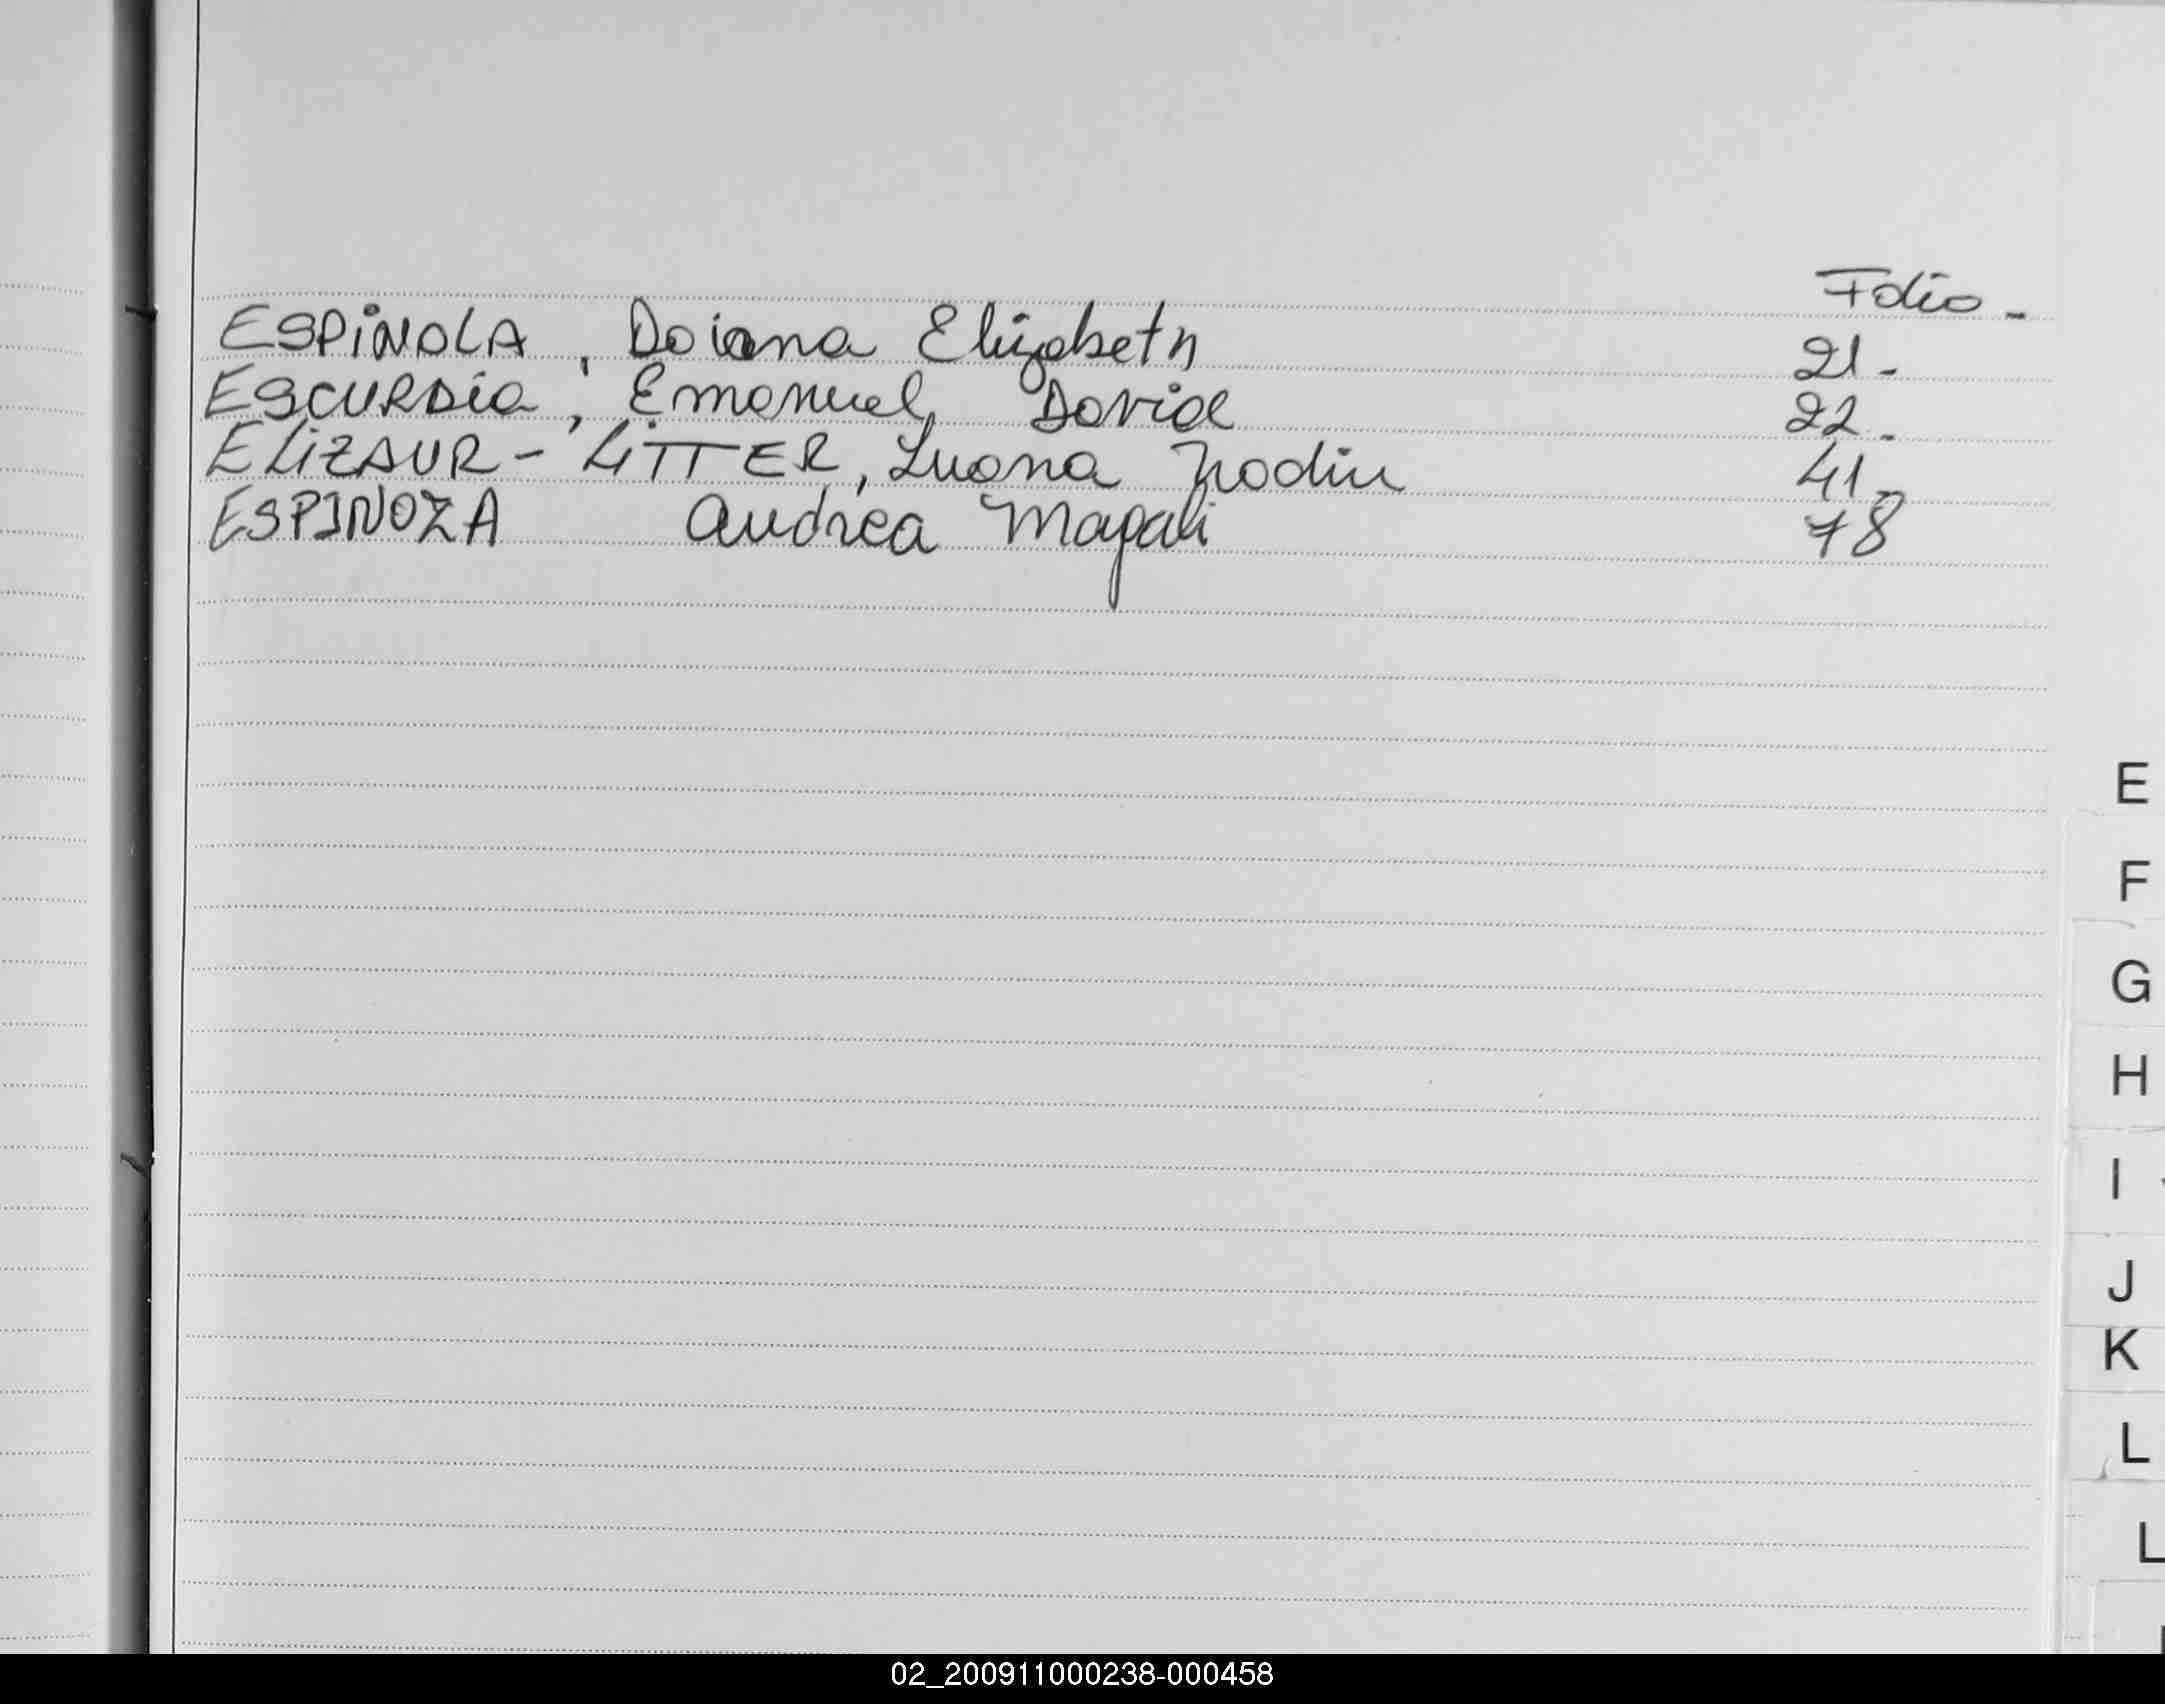 Folio -
ESPINOLA, Daiana Elizabeth 21.-
ESCURDia, Emanuel David 22.-
ELIZAUR-LITTER, Luana Nadin 41.-
ESPINOZA Andrea Magali 78
E
F
G
H
I
J
K
L
L
02_200911000238-000458